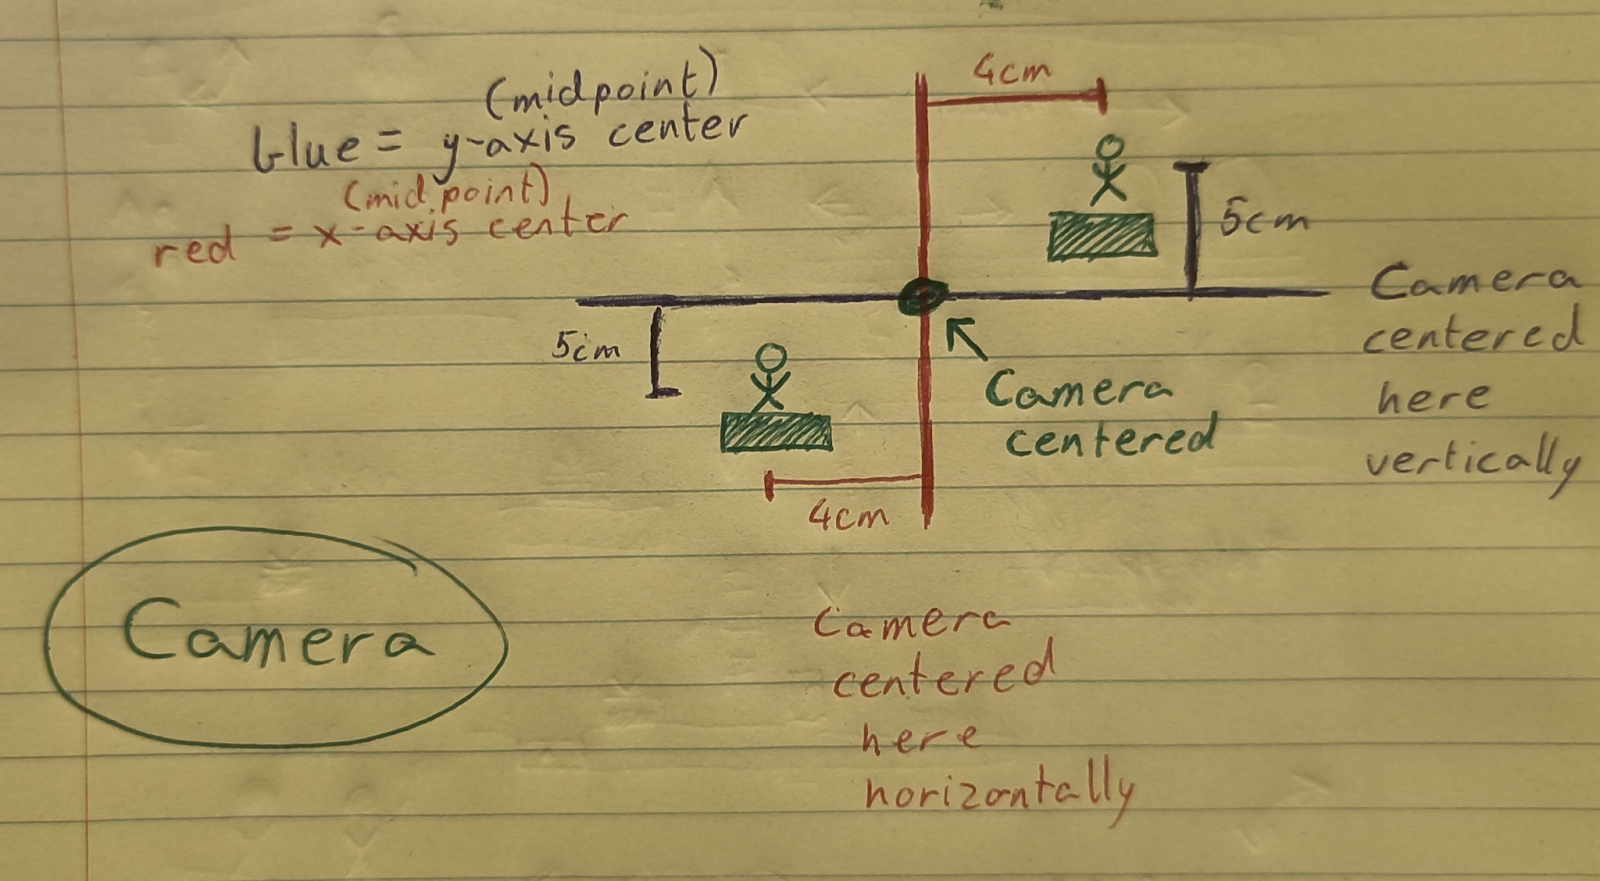 (midpoint)
blue = y-axis center
(midpoint)
red = x-axis center
4cm
5cm
5cm
4cm
Camera
centered
here
vertically
Camera
centered
Camera
Camera
centered
here
horizontally